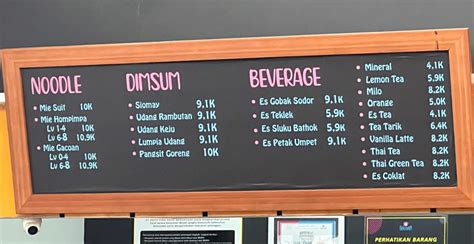 NOODLE
• Mie Suit 10K
• Mie Hompimpa
Lv 1-4 10K
Lv 6-8 10.9K
• Mie Gacoan
Lv 0-4 10K
Lv 6-8 10.9K
DIMSUM
• Siomay 9.1K
• Udang Rambutan 9.1K
• Udang Keju 9.1K
• Lumpia Udang 9.1K
• Pangsit Goreng 10K
BEVERAGE
• Es Gobak Sodor 9.1K
• Es Teklek 5.9K
• Es Sluku Bathok 5.9K
• Es Petak Umpet 9.1K
• Mineral 4.1K
• Lemon Tea 5.9K
• Milo 8.2K
• Orange 5.0K
• Es Tea 4.1K
• Tea Tarik 6.4K
• Vanilla Latte 8.2K
• Thai Tea 8.2K
• Thai Green Tea 8.2K
• Es Coklat 8.2K
PERHATIKAN BARANG